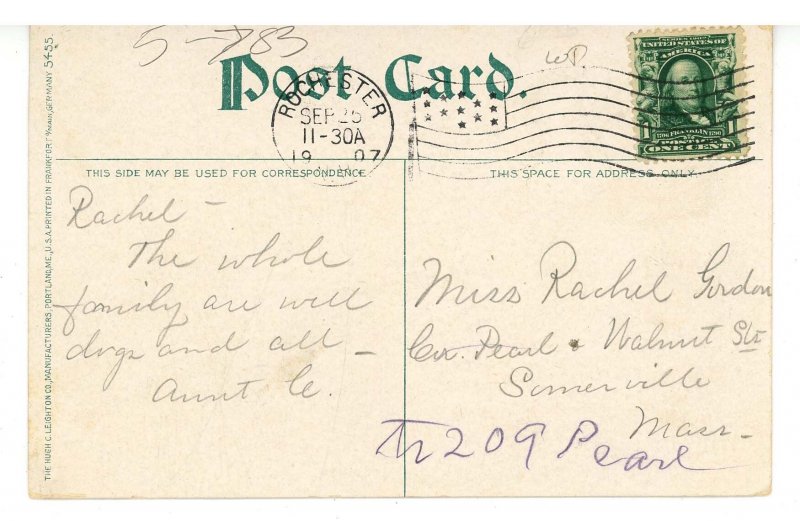 5-783
WP.
Post Card.
ROCHESTER
SEP 25
11-30A
1907
SERIES 1902
UNITED STATES OF AMERICA
1706 FRANKLIN 1790
1 POSTAGE 1
ONE CENT
THIS SIDE MAY BE USED FOR CORRESPONDENCE
THIS SPACE FOR ADDRESS ONLY
Rachel -
The whole
family are well
dogs and all -
Aunt C.
Miss Rachel Gordon
Cor. Pearl & Walnut Sts
Somerville
Mass -
209 Pearl
THE HUGH C. LEIGHTON CO., MANUFACTURERS, PORTLAND, ME., U.S.A. PRINTED IN FRANKFORT o/MAIN, GERMANY 5455.